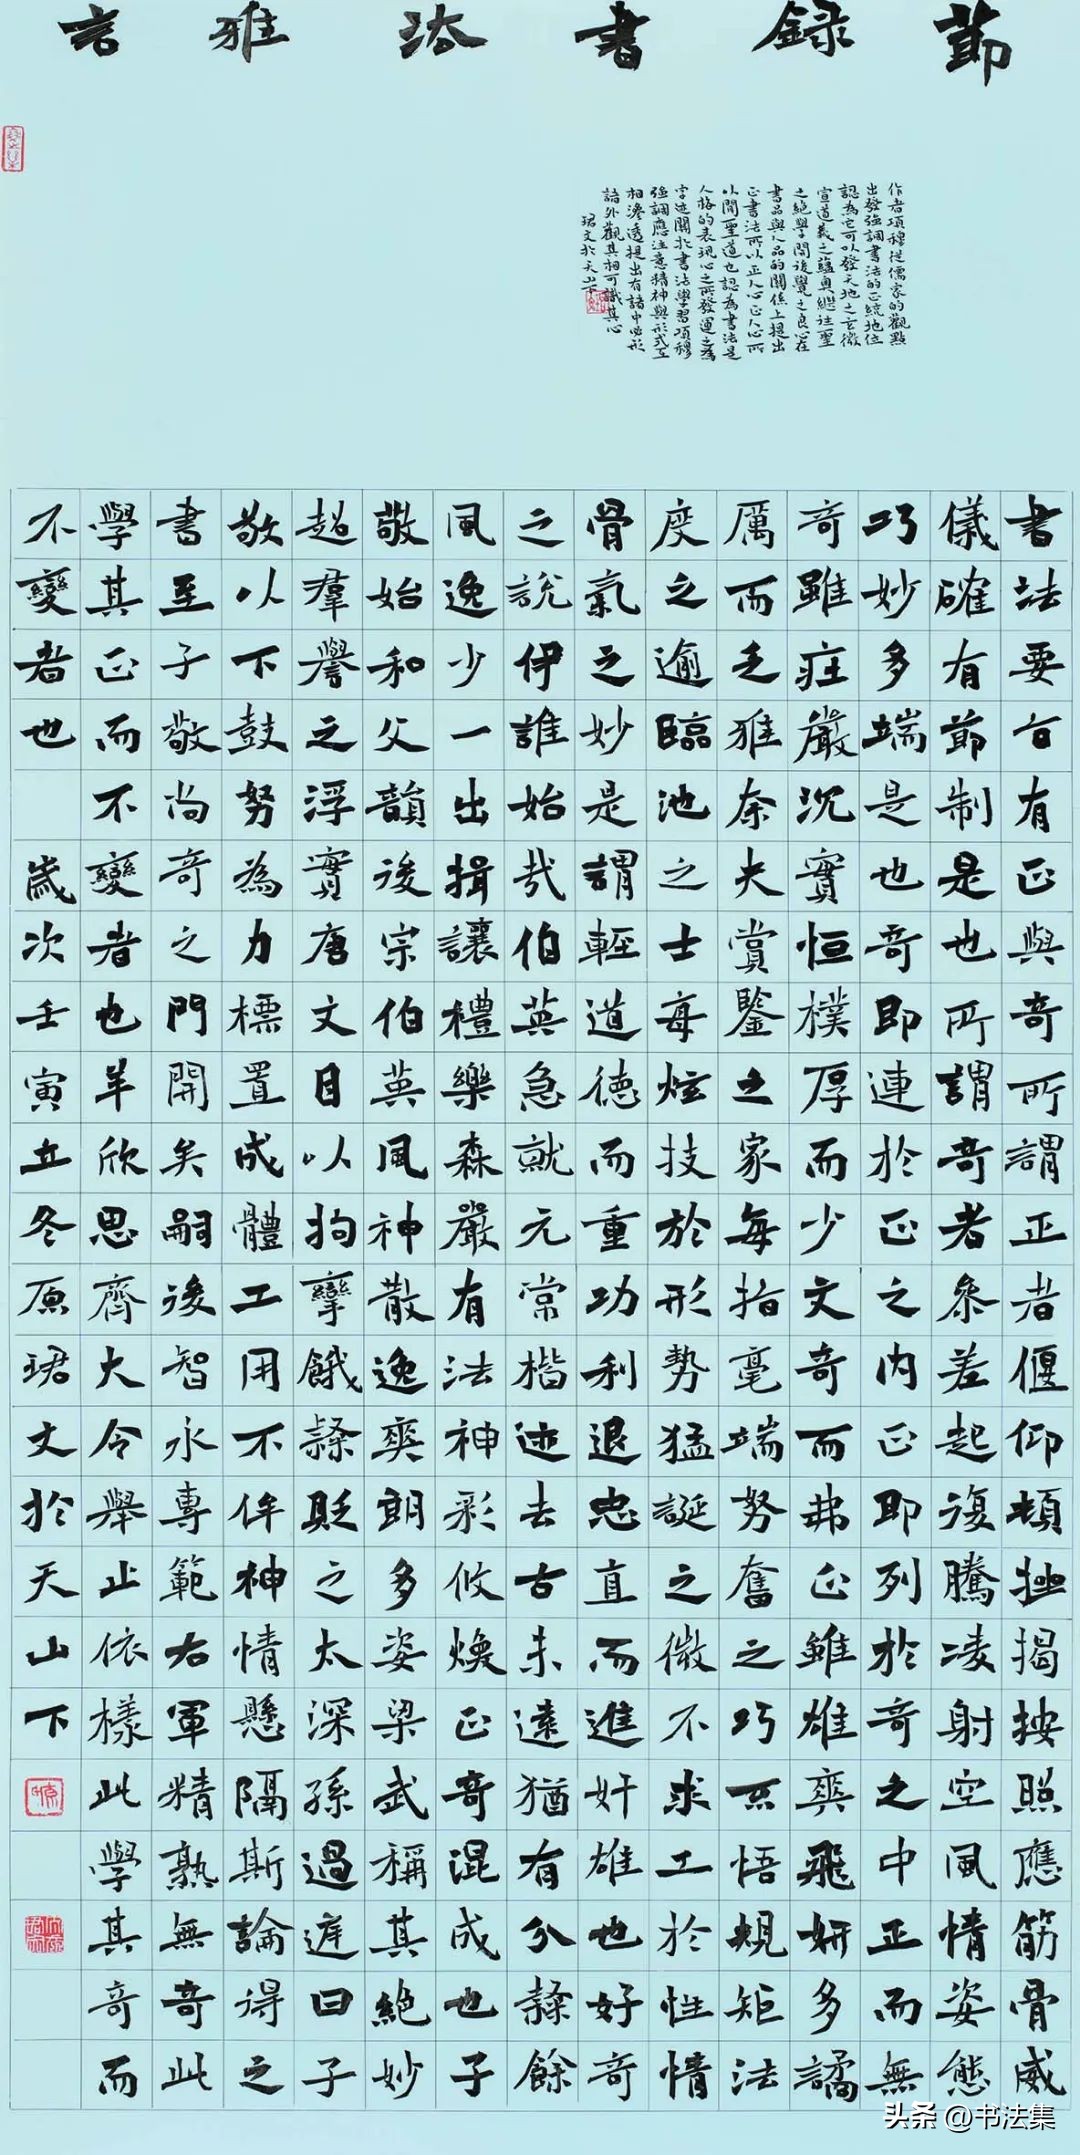 節錄書法雅言
作者項穆從儒家的觀點
出發強調書法的正統地位
認為它可以發天地之玄微
宣道義之蘊奧繼往聖
之絕學開後覺之良心在
書品與人品的關係上提出
正書法所以正人心正人心所
以閑聖道也認為書法是
人格的表現心之所發運之為
字迹關於書法學習項穆
強調應注意精神與形式互
相滲透提出有諸中必形
諸外觀其相可識其心
珺文於天山下
書法要旨有正與奇所謂正者偃仰頓挫揭按照應筋骨威
儀確有節制是也所謂奇者參差起復騰凌射空風情姿態
巧妙多端是也奇即連於正之內正即列於奇之中正而無
奇雖莊嚴沉實恒樸厚而少文奇而弗正雖雄爽飛妍多譎
厲而乏雅奈夫賞鑒之家每指毫端努奮之巧不悟規矩法
度之逾臨池之士每炫技於形勢猛誕之微不求工於性情
骨氣之妙是謂輕道德而重功利退忠直而進奸雄也好奇
之說伊誰始哉伯英急就元常楷迹去古未遠猶有分隸餘
風逸少一出揖讓禮樂森嚴有法神彩攸煥正奇混成也子
敬始和父韻後宗伯英風神散逸爽朗多姿梁武稱其絕妙
超群譽之浮實唐文目以拘攣餓隸貶之太深孫過庭曰子
敬以下鼓努為力標置成體工用不侔神情懸隔斯論得之
書至子敬尚奇之門開矣嗣後智永專範右軍精熟無奇此
學其正而不變者也羊欣思齊大令舉止依樣此學其奇而
不變者也　歲次壬寅立冬原珺文於天山下
头条 @书法集